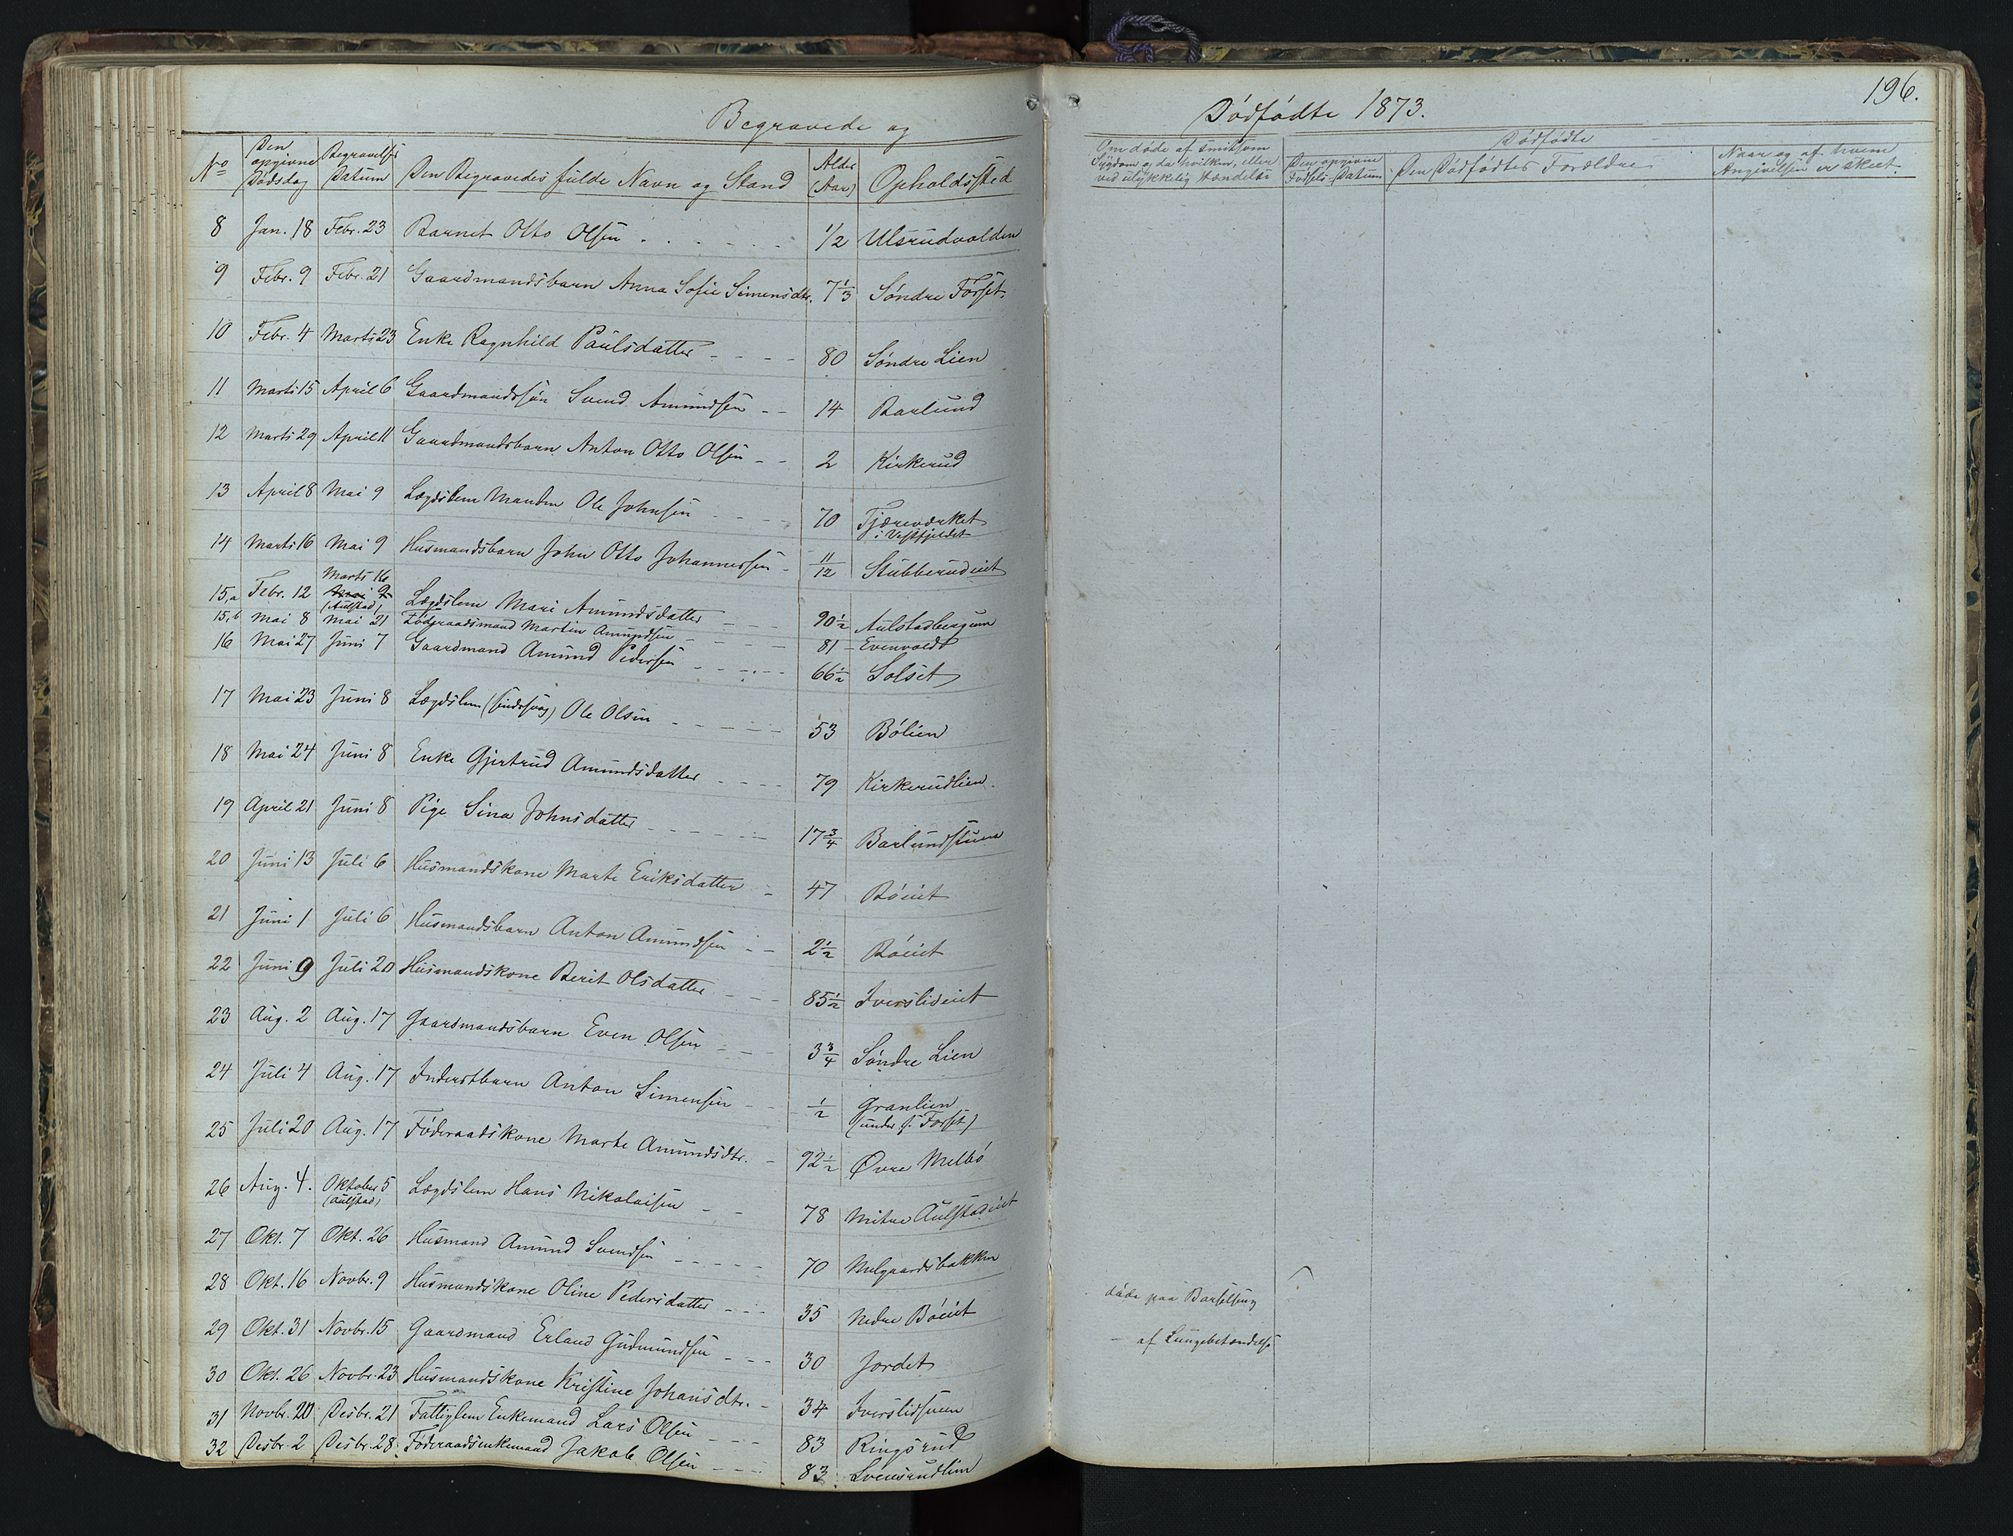 Begravede og
No Den opgivne Dødsdag Begravelses Datum Den Begravedes fulde Navn og Stand Alder (Aar) Opholdssted
8 Jan. 18 Febr. 23 Barnet Otto Olsen 1/2 Ulsrudvolden
9 Febr. 9 Febr. 21 Gaardmandsbarn Anna Sofie Simensdtr. 7 1/3 Søndre Forset.
10 Febr. 4 Marts 23 Enke Ragnhild Paulsdatter 80 Søndre Lien
11 Marts 15 April 6 Gaardmandssøn Svend Amundsen 14 Barlund
12 Marts 29 April 11 Gaardmandsbarn Anton Otto Olsen 2 Kirkerud
13 April 8 Mai 9 Lægdslem Manden Ole Johnsen 70 Tjæreværket
i Vestfjeldet
14 Marts 16 Mai 9 Husmandsbarn John Otto Johannessen 11/12 Stubberudeiet
Marts 16
15,a Febr. 12 Mai 9 Lægdslem Mari Amundsdatter 90 1/2 Aulstadbergum
(Aulstad)
15,b Mai 8 Mai 21 Føderaadsmand Martin Amundsen 81 Evenvoldt
16 Mai 27 Juni 7 Gaardmand Amund Pedersen 66 1/2 Solset
17 Mai 23 Juni 8 Lægdslem (sindssvag) Ole Olsen 53 Bølien
18 Mai 24 Juni 8 Enke Gjertrud Amundsdatter 79 Kirkerudlien.
19 April 21 Juni 8 Pige Sina Johnsdatter 17 3/4 Barlundstuen
20 Juni 13 Juli 6 Husmandskone Marte Eriksdatter 47 Bøeiet
21 Juni 1 Juli 6 Husmandsbarn Anton Amundsen 2 1/2 Bøeiet
22 Juni 9 Juli 20 Husmandskone Berit Olsdatter 85 1/2 Iversliseiet
23 Aug. 2 Aug. 17 Gaardmandsbarn Even Olsen 3 3/4 Søndre Lien
24 Juli 4 Aug. 17 Inderstbarn Anton Simensen 1/2 Granlien
(under s. Forset)
25 Juli 20 Aug. 17 Føderaadskone Marte Amundsdtr. 92 1/2 Øvre Melbö
26 Aug. 4. Oktober 5 Lægdslem Hans Nikolaisen 78 Mitre Aulstadeiet
(Aulstad)
27 Okt. 7 Okt. 26 Husmand Amund Svendsen 70 Melgaardsbakken
28 Okt. 16 Novbr. 9 Husmandskone Oline Pedersdatter 35 Nedre Bøeiet
29 Okt. 31 Novbr. 15 Gaardmand Erland Gudmundsen 30 Jordet
30 Okt. 26 Novbr. 23 Husmandskone Kristine Johansdtr. 34 Iverslidsveen
31 Novbr. 20 Desbr. 21 Fattiglem Enkemand Lars Olsen 83 Ringsrud
32 Desbr. 2 Desbr. 28 Føderaadsenkemand Jakob Olsen 83 Svensrudlien
Dødfødte 1873.
196.
Om døde af smitsom Sygdom og da hvilken, eller ved ulykkelig Hændelse
Dødfødte
Den opgivne Fødsels-Datum Den Dødfødtes Forældre Naar og af hvem Angivelsen er skeet.
døde paa Barselseng
– af Lungebetændelse